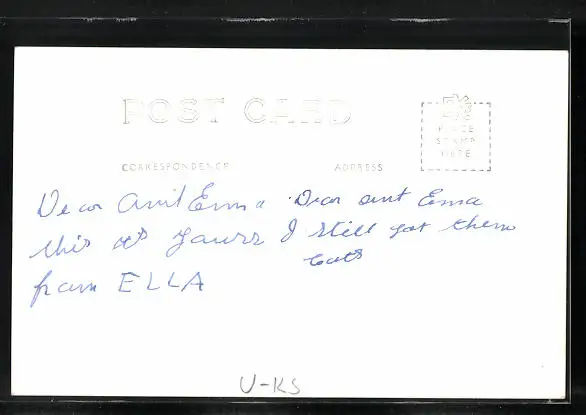 POST CARD
CORRESPONDENCE
ADDRESS
PLACE
STAMP
HERE
Dear Aunt Ema
this is yours
from ELLA
Dear aunt Ema
I still got them
cats
U-KS